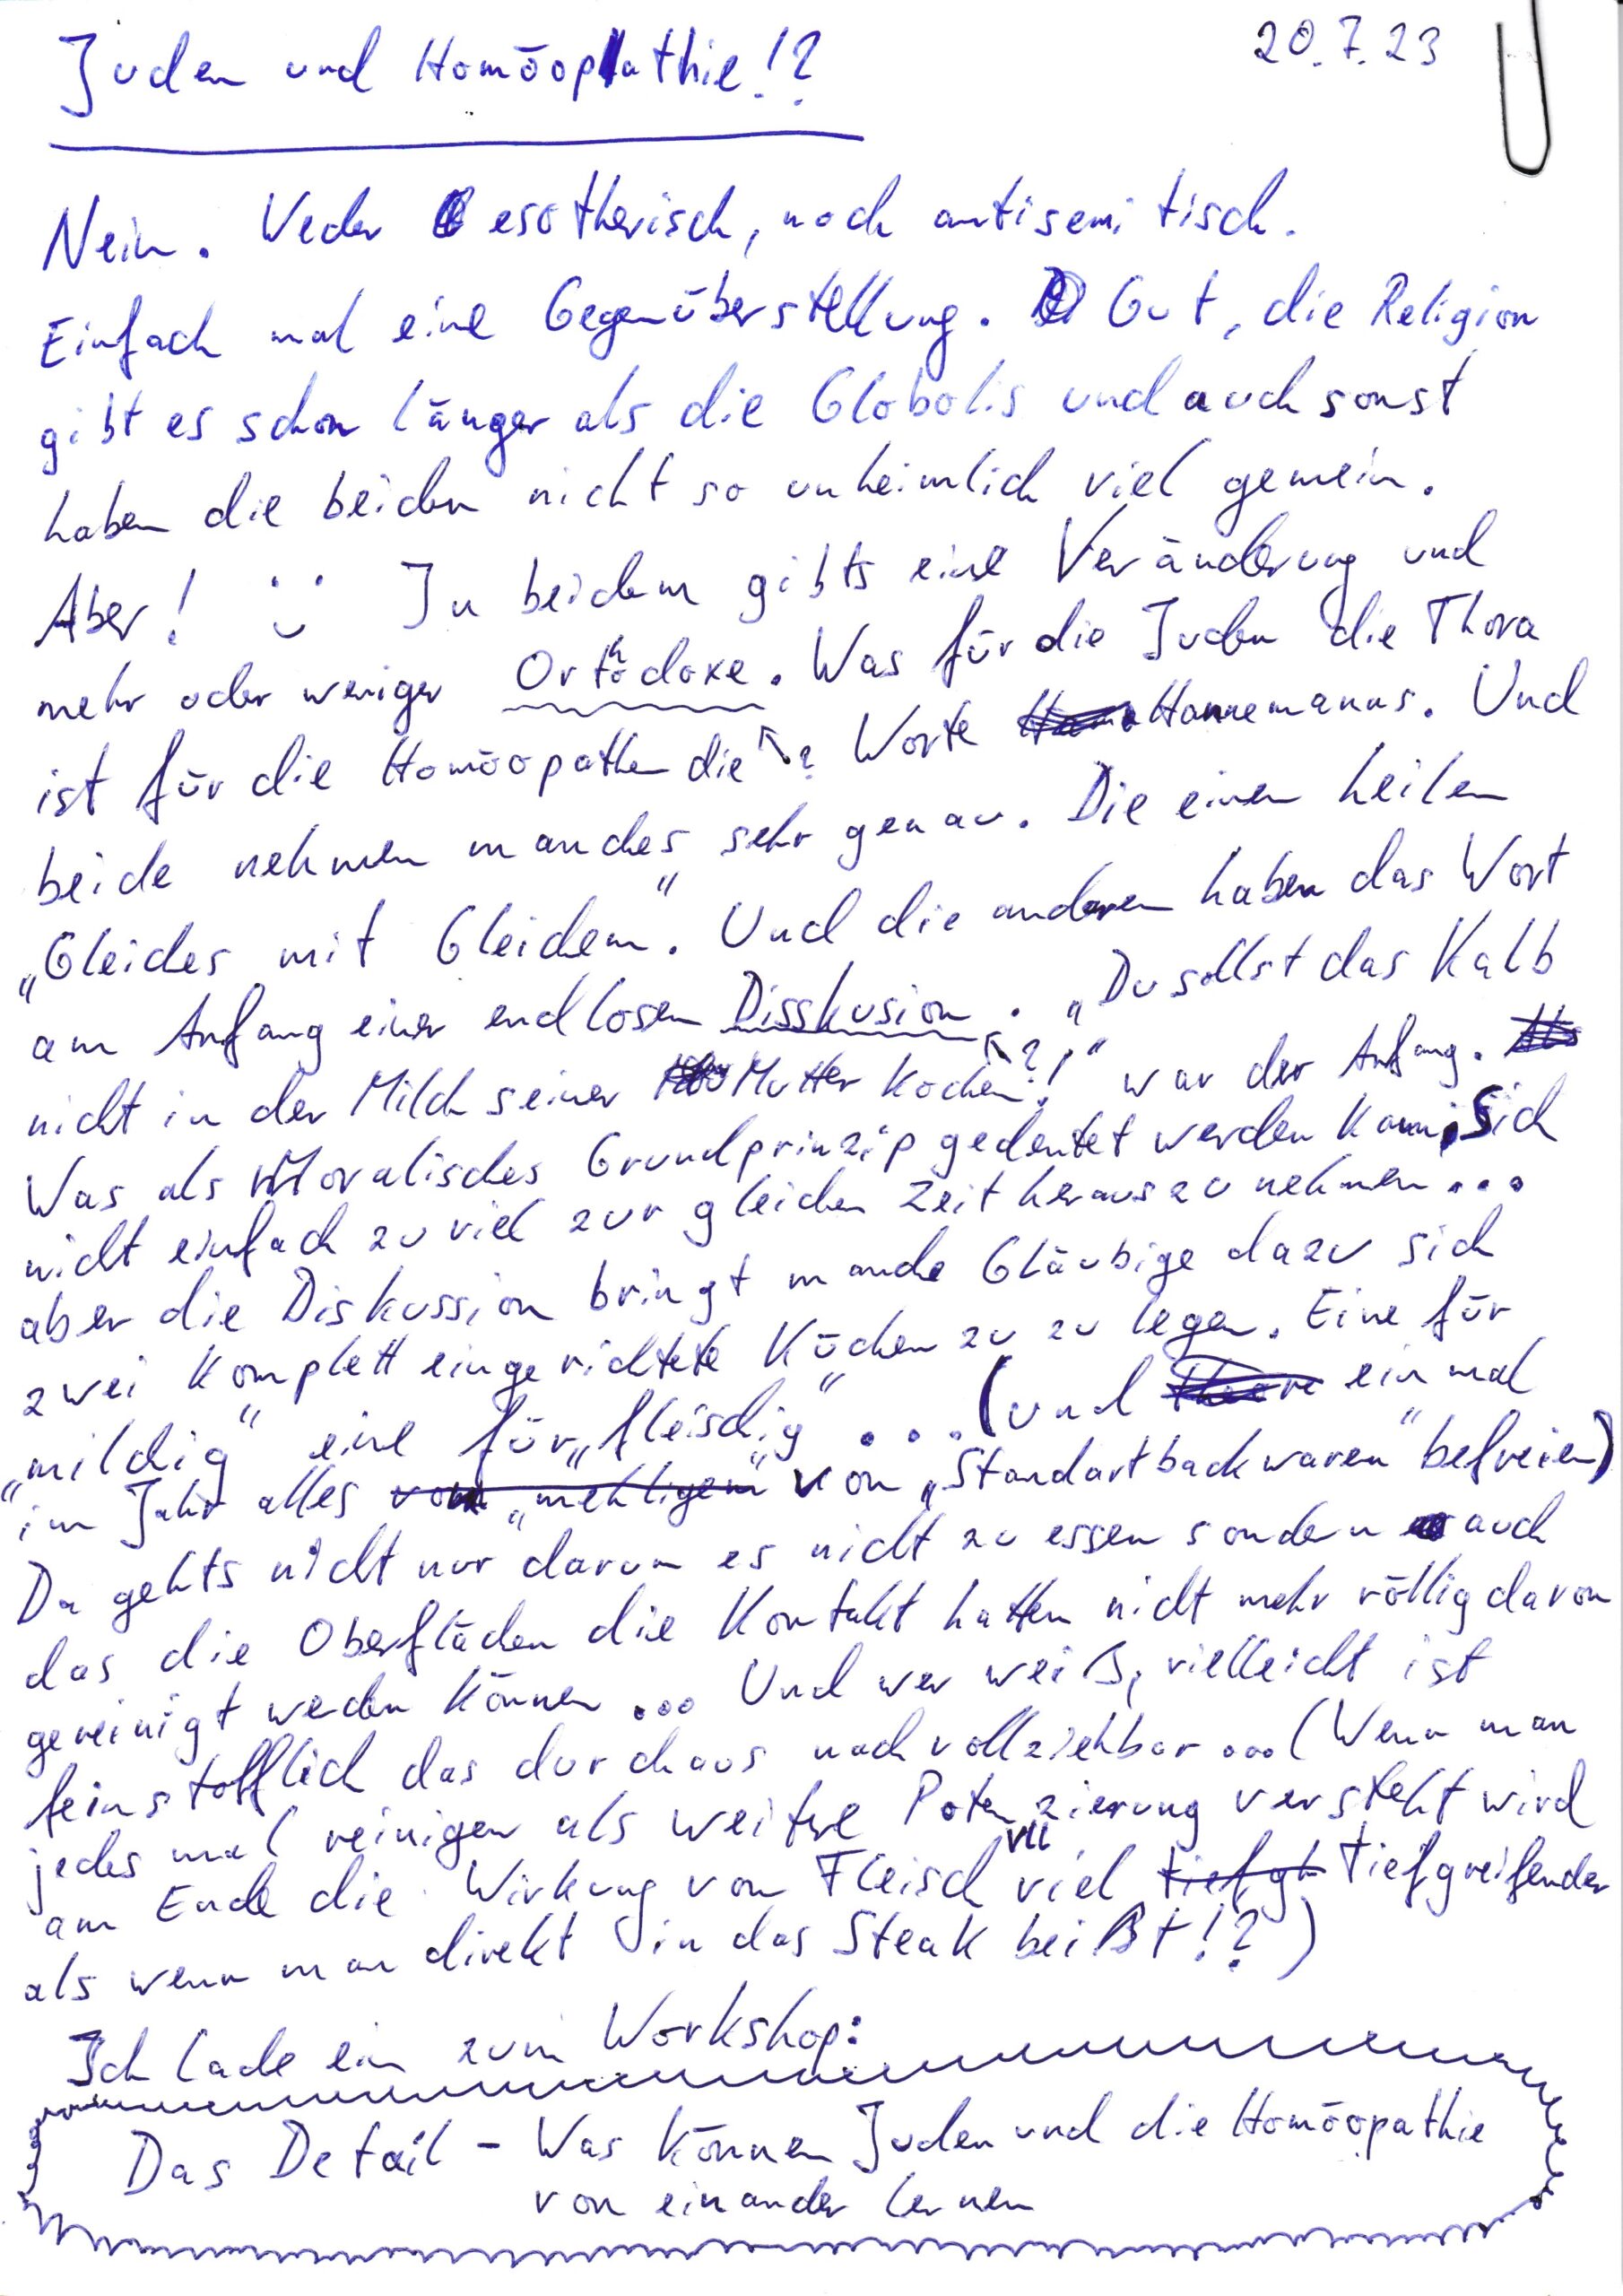 20.7.23
Juden und Homöopathie!?
Nein. Weder esotherisch, noch antisemitisch.
Einfach mal eine Gegenüberstellung. Gut, die Religion
gibt es schon länger als die Globolis und auch sonst
haben die beiden nicht so unheimlich viel gemein.
Aber! In beidem gibts eine Veränderung und
mehr oder weniger Orthodoxe. Was für die Juden die Thora
ist für die Homöopathen die ? Worte Hannemanns. Und
beide nehmen manches sehr genau. Die einen heilen
„Gleiches mit Gleichem“. Und die anderen haben das Wort
am Anfang einer endlosen Disskusion. „Du sollst das Kalb
nicht in der Milch seiner Mutter kochen?!“ war der Anfang.
Was als Moralisches Grundprinzip gedeutet werden kann, Sich
nicht einfach zu viel zur gleichen Zeit herauszunehmen...
aber die Diskussion bringt manche Gläubige dazu sich
zwei komplett eingerichtete Küchen zu zu legen. Eine für
„milchig“ eine für „fleischig“ ... (und einmal
im Jahr alles von „Standartbackwaren“ befreien)
Da gehts nicht nur darum es nicht zu essen sondern auch
das die Oberflächen die Kontakt hatten nicht mehr völlig davon
gereinigt weden können ... Und wer weiß, vielleicht ist
feinstofflich das durchaus nachvollziehbar ... (Wenn man
jedes mal reinigen als weitere Potenzierung versteht wird
am Ende die Wirkung vom Fleisch viel tiefgreifender
als wenn man direkt in das Steak beißt!?)
Ich lade ein zum Workshop:
Das Detail - Was können Juden und die Homöopathie
von einander lernen